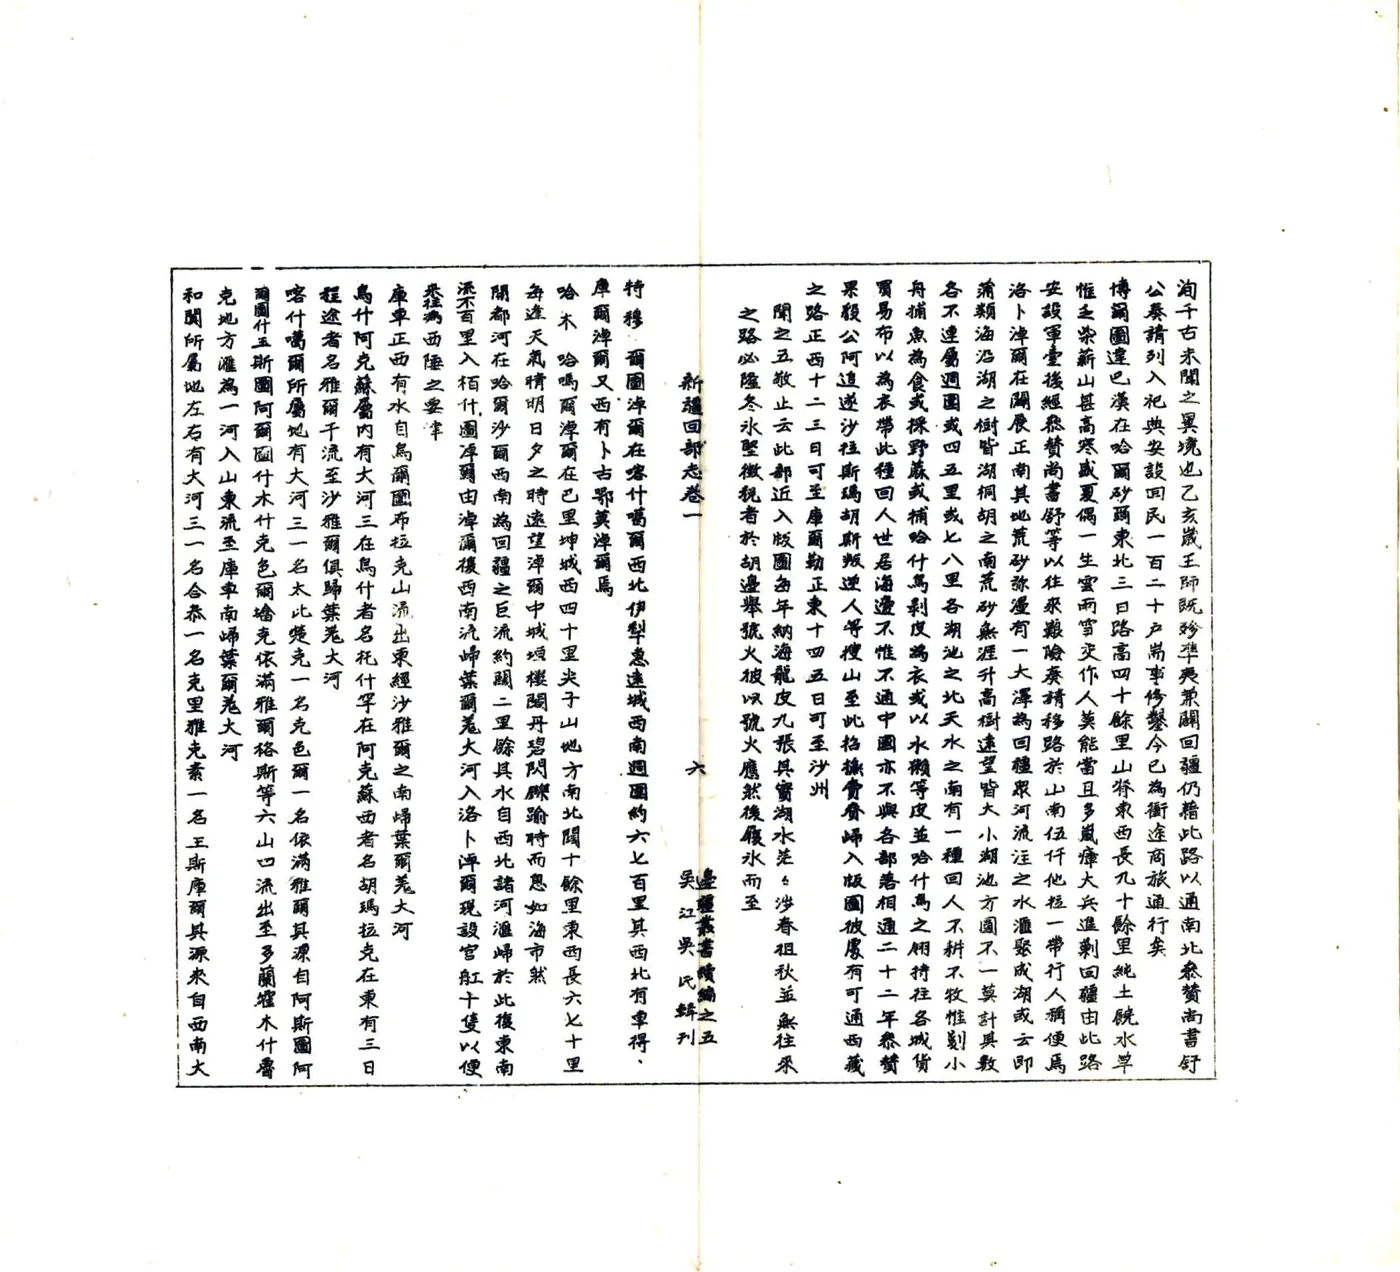 洵千古未聞之異境也乙亥歲王師既殄準夷兼闢回疆仍藉此路以通南北叅贊尚書舒
公奏請列入祀典安設回民一百二十户耑事修鑿今已為衝途商旅通行矣
博爾圖達巴漢在哈爾砂爾東北三日路高四十餘里山脊東西長九十餘里純土饒水草
惟乏柴薪山甚高寒盛夏偶一生雲雨雪交作人莫能當且多嵐瘴大兵進剿回疆由此路
安設軍臺後經叅贊尚書舒等以往來艱險奏請移路於山南伍仟他拉一帶行人稱便焉
洛卜淖爾在闢展正南其地荒砂弥漫有一大澤為回疆衆河流注之水滙聚成湖或云即
蒲類海沿湖之樹皆湖桐胡之南荒砂無涯升高樹遠望皆大小湖池方圓不一莫計其數
各不連屬週圍或四五里或七八里各湖池之北天水之南有一種回人不耕不牧惟划小
舟捕魚為食或採野蔴或捕哈什鳥剥皮為衣或以水獺等皮並哈什鳥之翎持往各城貨
買易布以為衣帶此種回人世居海邊不惟不通中國亦不與各部落相通二十二年叅贊
果毅公阿追逐沙往斯瑪胡斯叛逆人等搜山至此招撫賫賚歸入版圖彼處有可通西藏
之路正西十二三日可至庫爾勒正東十四五日可至沙州
聞之五敬止云此部近入版圖每年納海龍皮九張其實湖水茫茫涉春徂秋並無往來
之路必隆冬氷堅徵税者於胡邊舉號火彼以號火應然後履氷而至
新疆回部志卷一
六
邊疆叢書續編之五
吳江吳氏輯刊
特穆爾圖淖爾在喀什噶爾西北伊犁惠遠城西南週圍約六七百里其西北有車得、
庫爾淖爾又西有卜古鄂莫淖爾焉
哈木哈嗎爾淖爾在巴里坤城西四十里尖子山地方南北闊十餘里東西長六七十里
每逢天氣晴明日夕之時遠望淖爾中城垣樓閣丹碧閃爍踰時而息如海市然
開都河在哈爾沙爾西南為回疆之巨流約闊二里餘其水自西北諸河滙歸於此復東南
流不百里入栢什圖淖爾由淖爾復西南流歸葉爾羌大河入洛卜淖爾現設官舡十隻以便
來往為西陲之要津
庫車正西有水自烏爾圖布拉克山流出東經沙雅爾之南歸葉爾羌大河
烏什阿克蘇屬內有大河三在烏什者名托什罕在阿克蘇西者名胡瑪拉克在東有三日
程途者名雅爾干流至沙雅爾俱歸葉羌大河
喀什噶爾所屬地有大河三一名太此楚克一名克色爾一名依滿雅爾其源自阿斯圖阿
爾圖什玉斯圖阿爾圖什木什克色爾墖克依滿雅爾格斯等六山口流出至多蘭霍木什魯
克地方滙為一河入山東流至庫車南歸葉爾羌大河
和闐所屬地左右有大河三一名合叅一名克里雅克素一名玉斯庫爾其源來自西南大